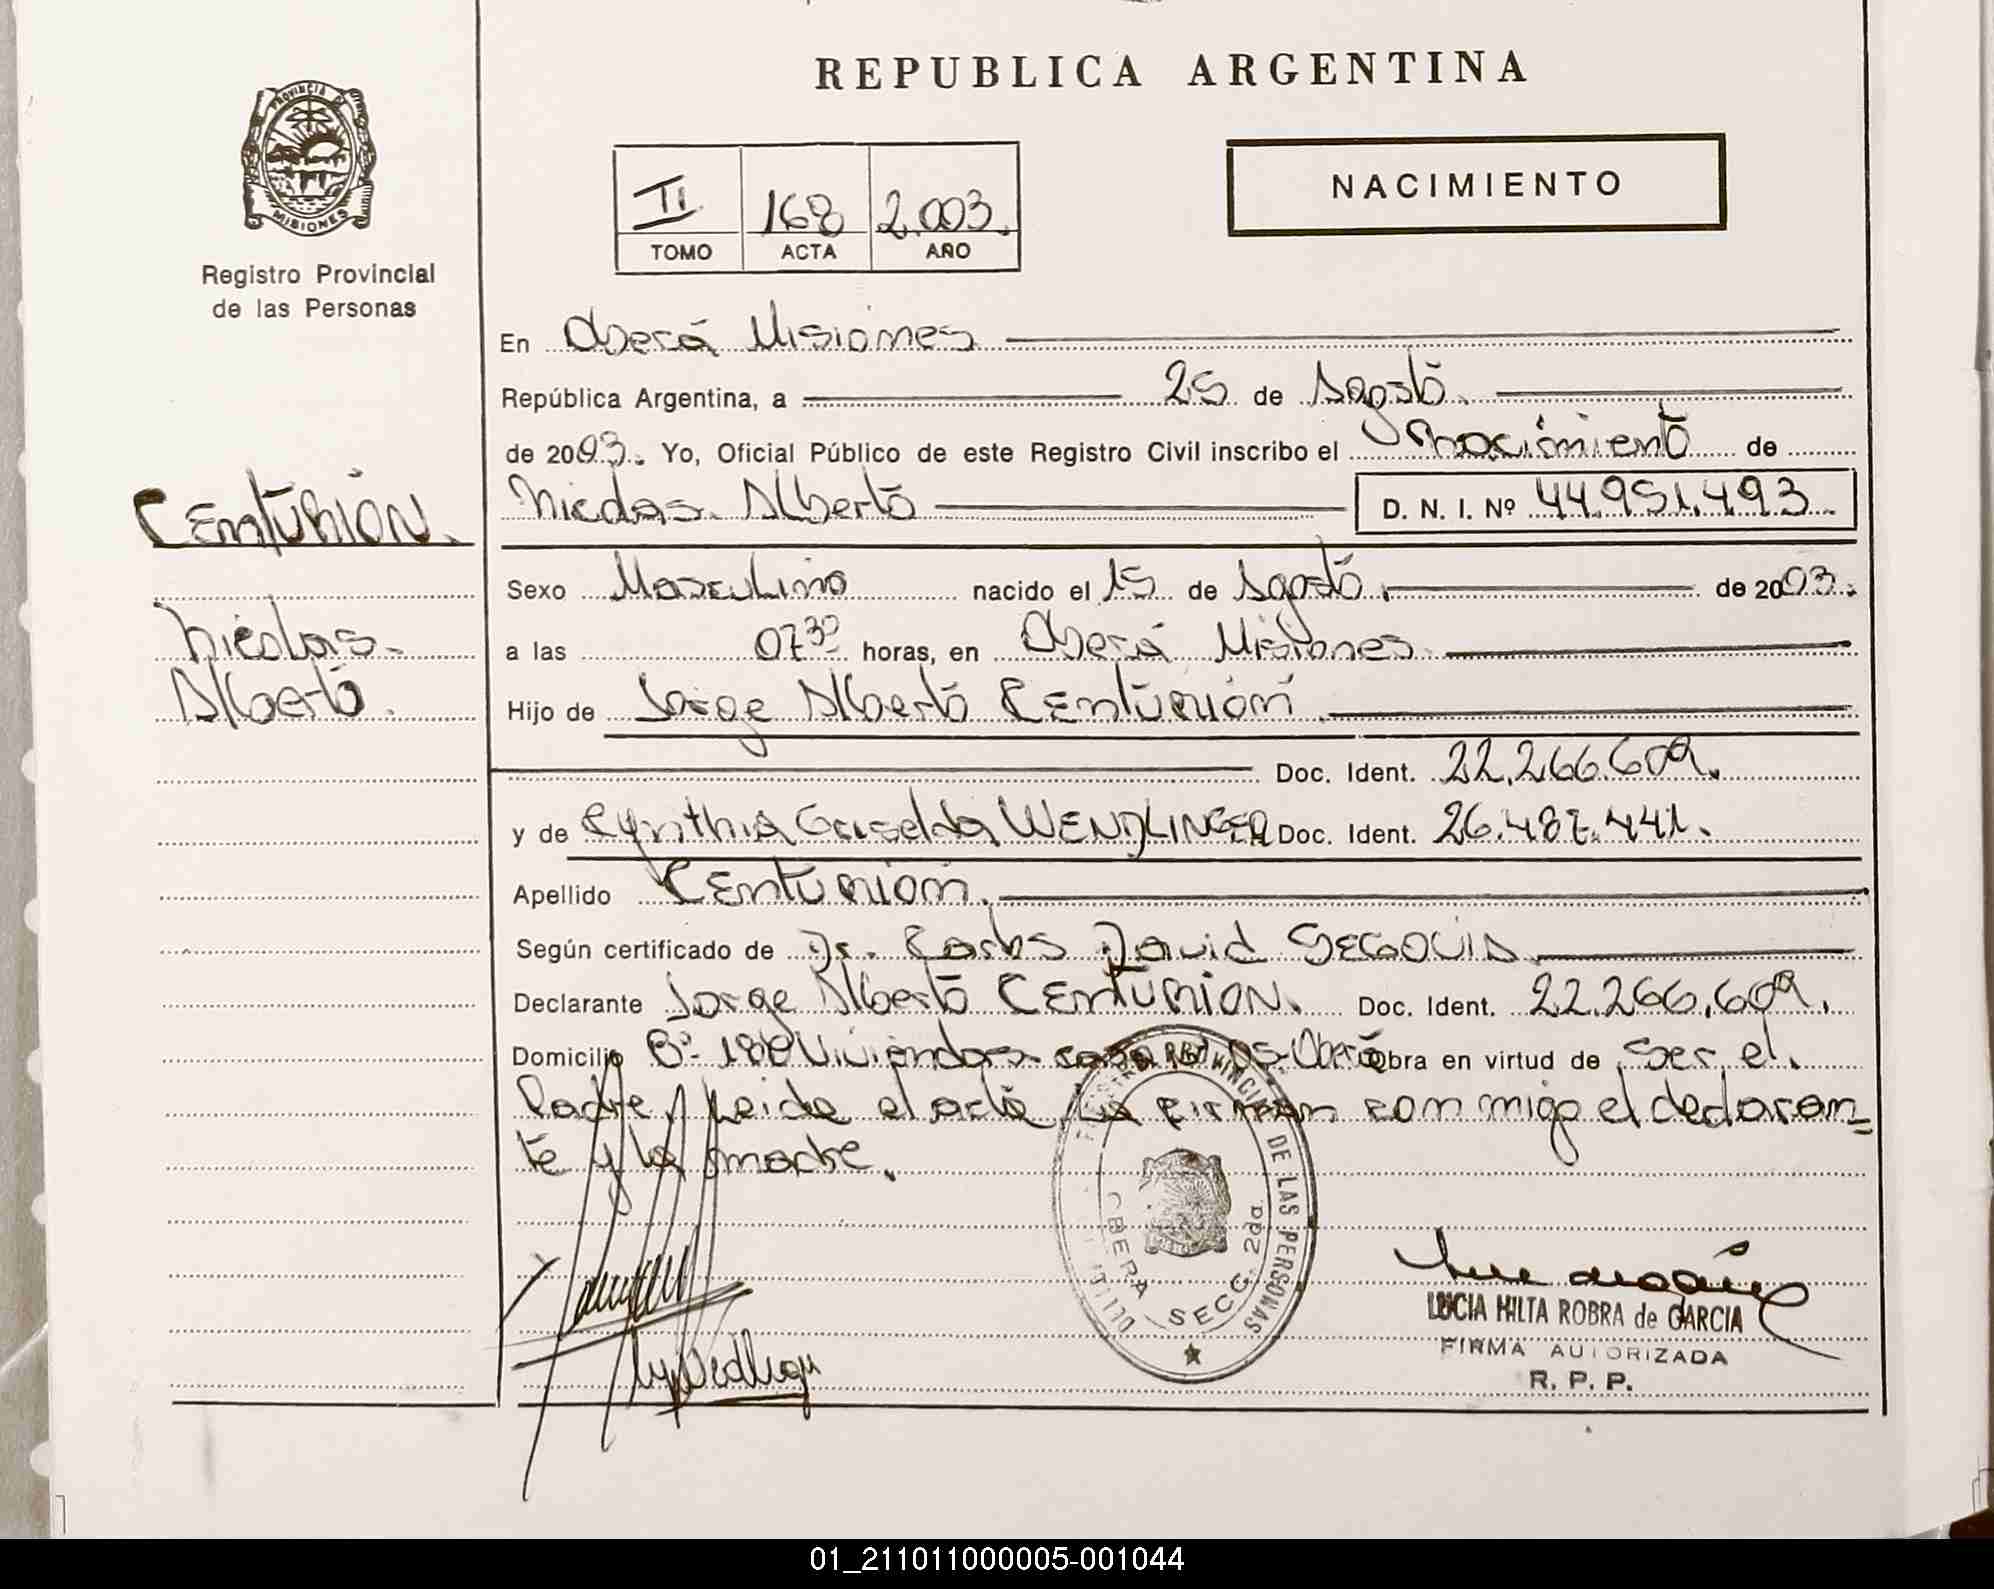 REPUBLICA ARGENTINA
PROVINCIA DE
MISIONES
Registro Provincial
de las Personas
II 168 2.003.
TOMO ACTA AÑO
NACIMIENTO
En Oberá Misiones
República Argentina, a 25 de Agosto.
de 2003. Yo, Oficial Público de este Registro Civil inscribo el Nacimiento de
Nicolas Alberto D. N. I. Nº 44.951.493.
CENTURION.
Nicolas
Alberto.
Sexo Masculino nacido el 15 de Agosto. de 2003.
a las 07³⁰ horas, en Oberá Misiones.
Hijo de Jorge Alberto CENTURION.
Doc. Ident. 22.266.609.
y de Cynthia Griselda WENDLINGER Doc. Ident. 26.487.441.
Apellido CENTURION.
Según certificado de Dr. Carlos David SEGOVIA.
Declarante Jorge Alberto CENTURION. Doc. Ident. 22.266.609.
Domicilio Bº 180 Viviendas casa Oberá Obra en virtud de ser el
Padre, Leida el acta, la firman conmigo el declaran=
te y la madre.
REGISTRO PROVINCIAL DE LAS PERSONAS
OBERA SECC. 2da.
LUCIA HILTA ROBRA de GARCIA
FIRMA AUTORIZADA
R. P. P.
01_211011000005-001044